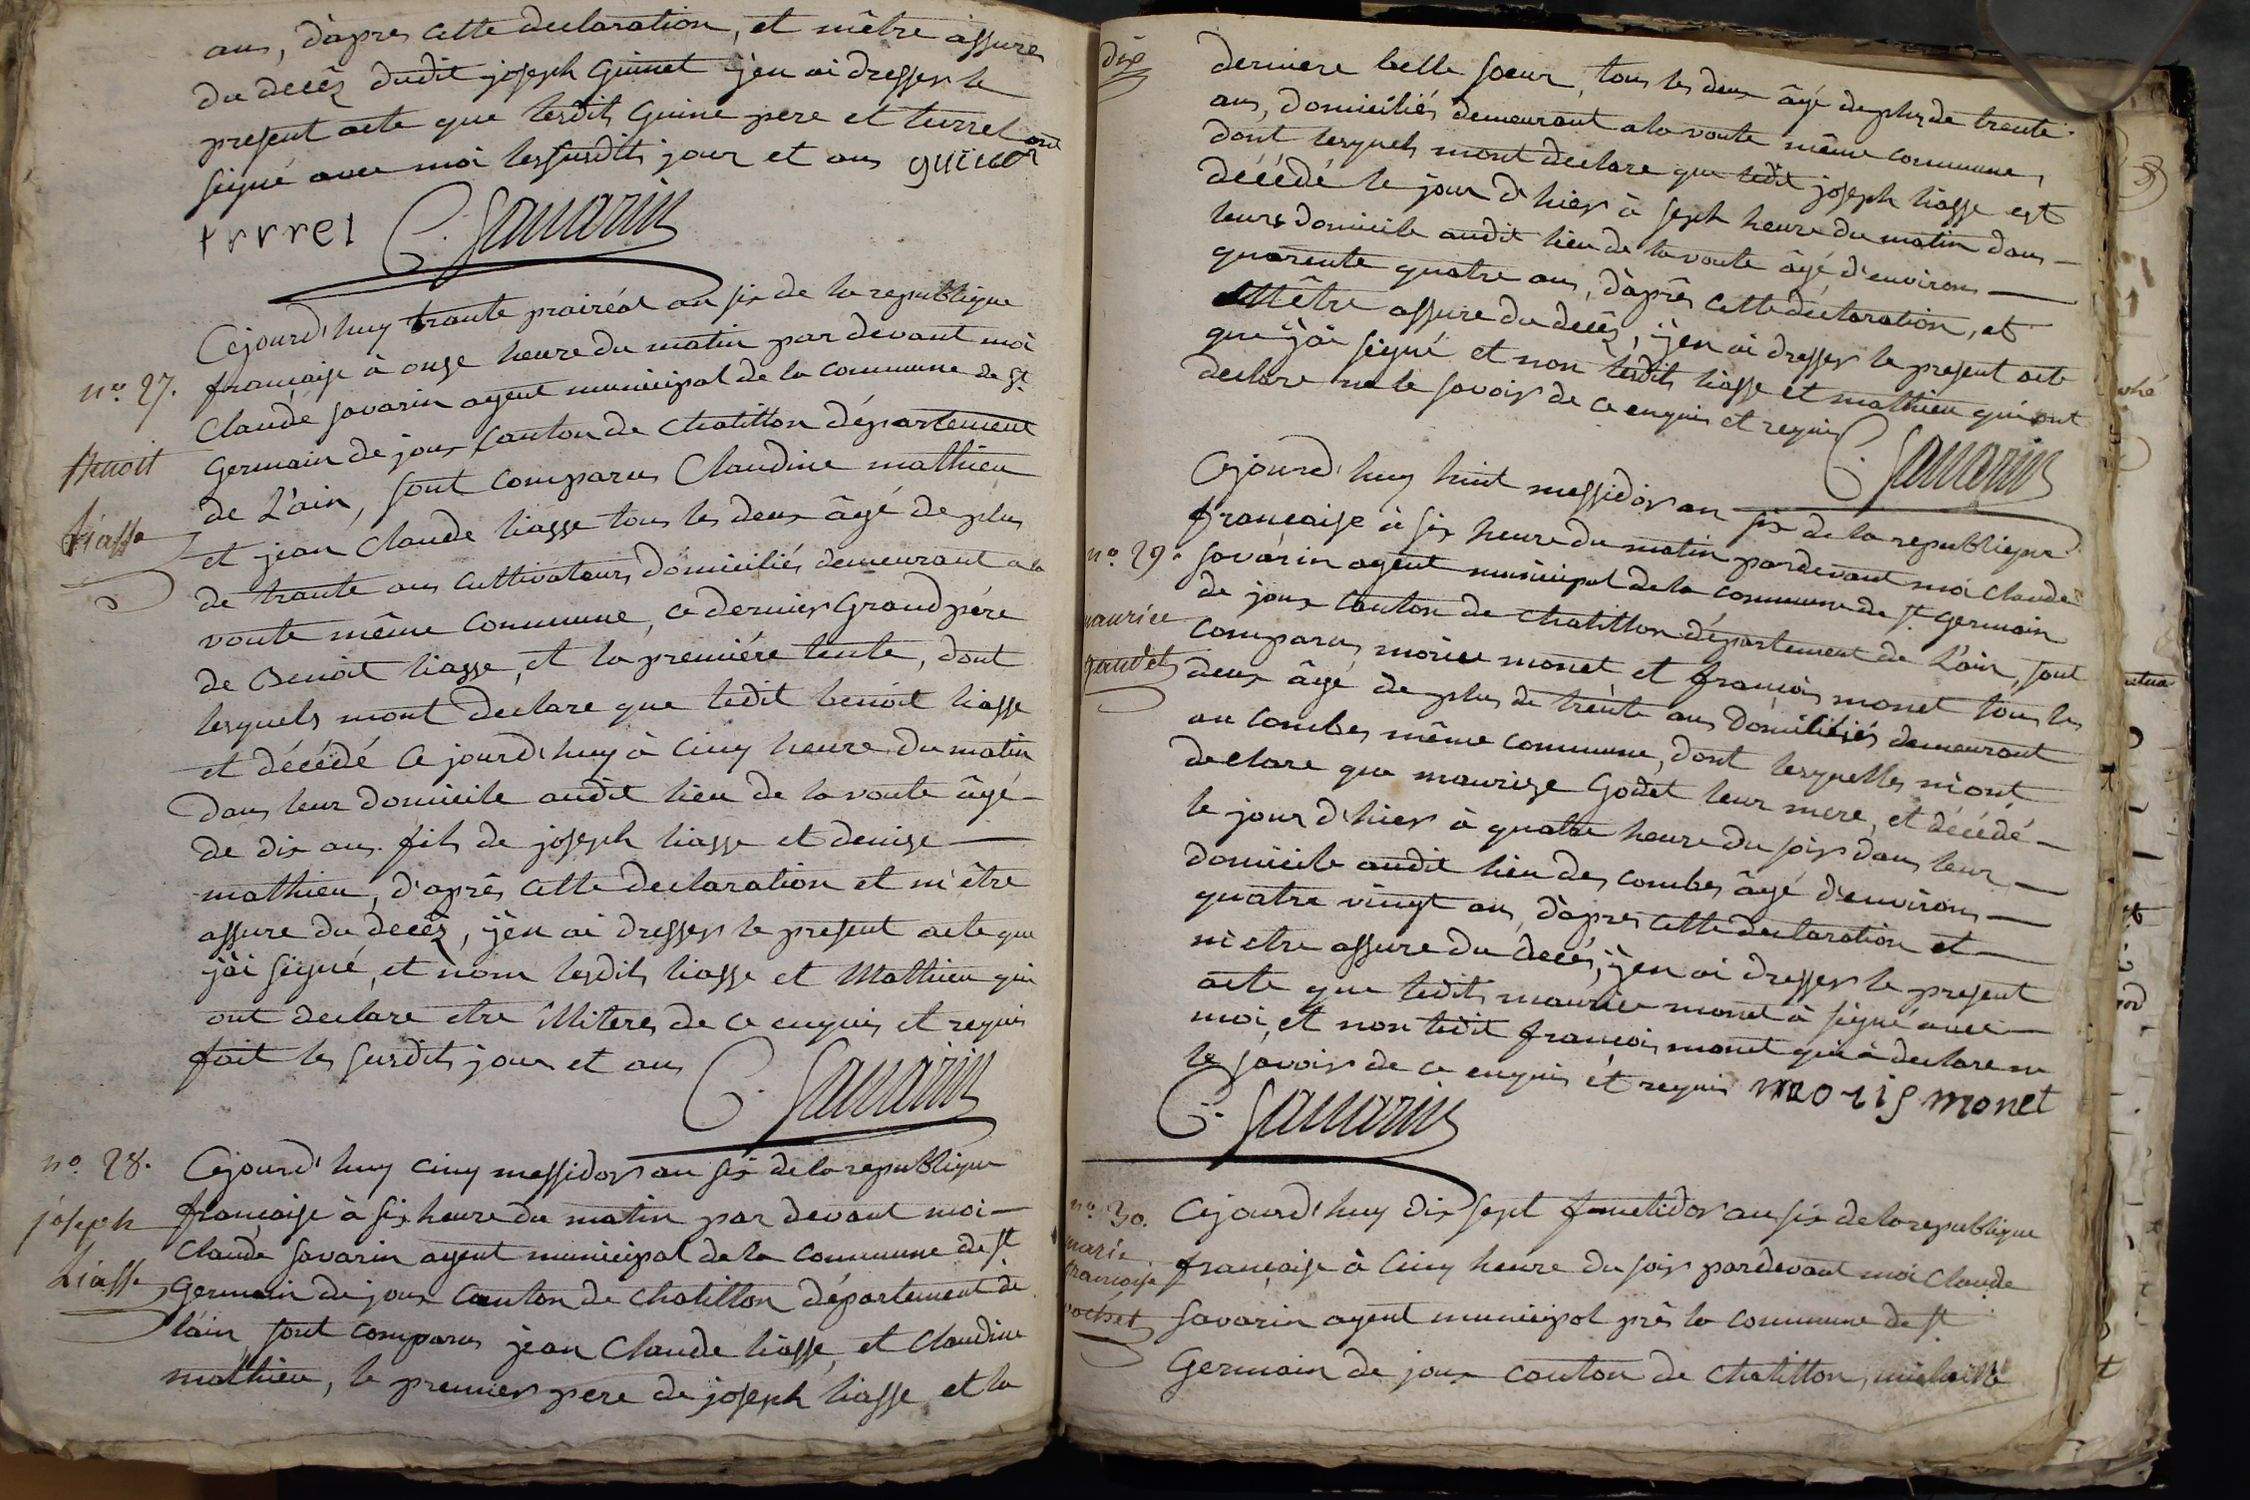 ans, dàpres cette declaration, et mêtre assure
du decéz dudit joseph Guinet j'en ai dresser le
present acte que lesdits Guine pere et turrel ont
signé avec moi lessusdits jour et ans guinet
turrel C. Savarin
Cejourd'huy trante prairéal an six de la republique
française à onze heure du matin par devant moi
n.o 27. Claude savarin agent municipal de la commune de St
Germain de joux Canton de Chatillon département
Benoit de L'ain, sont comparus Claudine mathieu
Liasse et jean Claude liasse tous les deux âgé de plus
de trante ans cultivateurs domiciliés demeurant a la
voute même commune, ce dernier Grand pére
de Benoit liasse, et la premiére tente, dont
lesquels mont déclare que ledit benoit liasse
et décédé Ce jourd'huy à cinq heure du matin
dans leur domicile audit lieu de la voute âgé
de dix ans. fils de joseph liasse et denise
mathieu, d'aprês cette declaration et m'être
assure du decéz, j'en ai dresser le present acte que
j'ai signé, et nom lesdits liasse et Mathieu qui
ont declare etre illiteres de ce enquis et requis
fait les susdits jour et ans C. Savarin
n.o 28. Cejourd'huy cinq messidor an six de la republique
joseph française à six heure du matin par devant moi
Claude savarin agent municipal de la commune de St
Liasse Germain de joux Canton de Chatillon département de
l'ain, sont comparus jean Claude liasse, et Claudine
mathieu, le premier pere de joseph liasse et la
dix
derniere belle soeur, tous les deux âgé de plus de trente
ans, domiciliés demeurant a la voute même commune,
dont lesquels mont declare que ledit joseph liasse est
décédé le jour d'hier à sept heure du matin dans
leurs domicile audit lieu de la voute âgé d'environ
quarente quatre ans, dàprês cette declaration, et
mêtre assure du decéz, j'en ai dresser le present acte
que j'ai signé et non lesdits liasse et mathieu qui ont
declare ne le savoir de ce enquis et requis C. Savarin
Cejourd'huy huit messidor an six de la republique
française à six heure du matin pardevant moi Claude
n.o 29. savarin agent municipal de la commune de St Germain
de joux Canton de Chatillon département de L'ain, sont
maurice comparus morice monet et françois monet tous les
gaudet deux âgé de plus de trente ans domiciliés demeurant
au combes même commune, dont lesquelles m'ont
declare que maurize Godet leur mere, et décédé
le jour d'hier à quatre heure du soir dans leur
domicile audit lieu des combes âgé d'environ
quatre vingt ans, dàpres cette declaration et
m'etre assure du decés, j'en ai dresser le present
acte que ledits maurice monet à signé avec
moi, et non ledit françois monet qui à declare ne
le savoir de ce enquis et requis moris monet
C. Savarin
n.o 30. Cejourd'huy dix sept fruetidor an six de la republique
marie
francoise française à Cinq heure du soir pardevant moi Claude
rochet savarin agent municipal près la commune de St
Germain de joux canton de Chatillon,